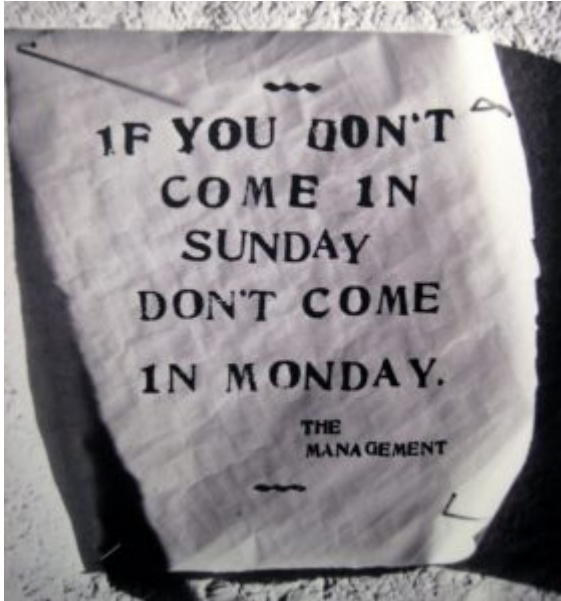 IF YOU DON'T
COME IN
SUNDAY
DON'T COME
IN MONDAY.
THE
MANAGEMENT